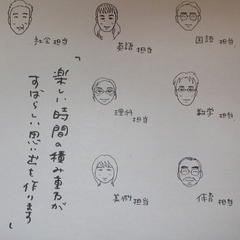 社会担当
英語担当
国語担当
理科担当
数学担当
美術担当
体育担当
「楽しい時間の積み重ねが
すばらしい思い出を作ります」